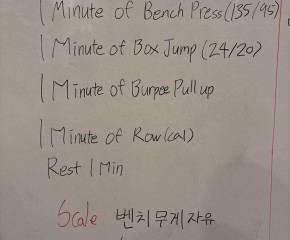 1 Minute of Bench Press (135/95)
1 Minute of Box Jump (24/20)
1 Minute of Burpee Pull up
1 Minute of Row (cal)
Rest 1 Min
Scale 벤치 무게 자유